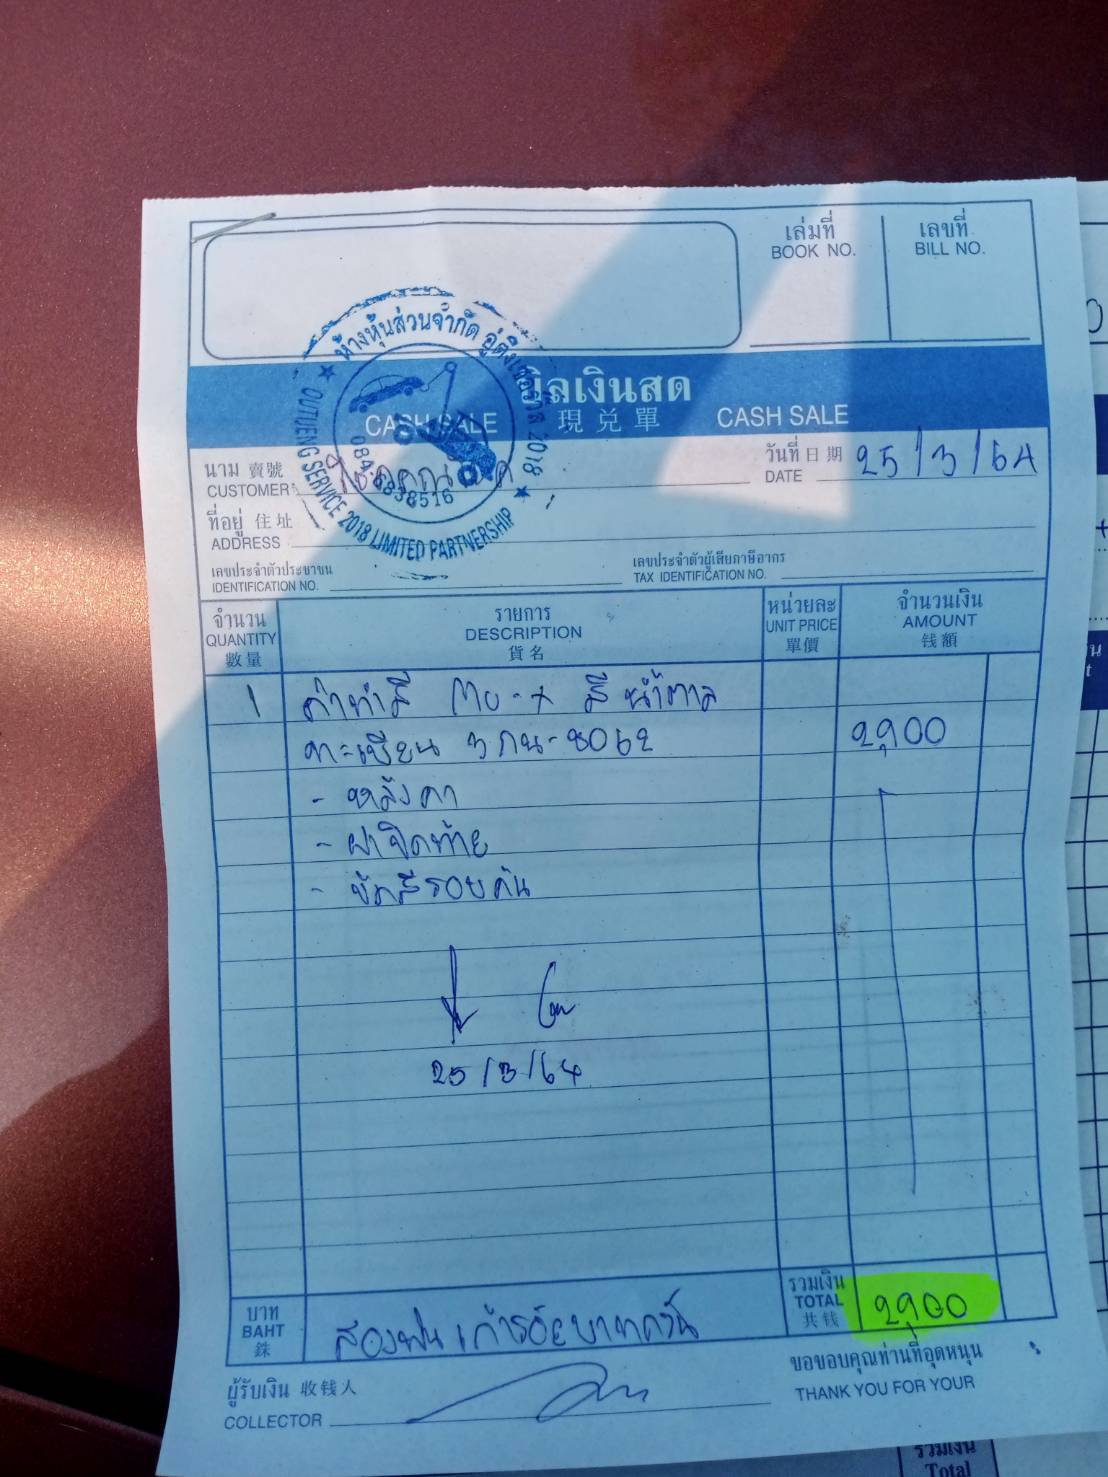 เล่มที่
BOOK NO.
เลขที่
BILL NO.
ห้างหุ้นส่วนจำกัด อู่ติ่งเซอร์วิส 2018
OUTUENG SERVICE 2018 LIMITED PARTNERSHIP
บิลเงินสด
CASH SALE 現兑單 CASH SALE
นาม 賣號
CUSTOMER
วันที่ 日期
DATE
25/3/64
ที่อยู่ 住址
ADDRESS
เลขประจำตัวประชาชน
IDENTIFICATION NO.
เลขประจำตัวผู้เสียภาษีอากร
TAX IDENTIFICATION NO.
จำนวน
QUANTITY
數量
รายการ
DESCRIPTION
貨名
หน่วยละ
UNIT PRICE
單價
จำนวนเงิน
AMOUNT
钱額
1 ค่าทำสี MU-X สีน้ำตาล
ทะเบียน 3กน-8062 2,900
- หลังคา
- ฝาปิดท้าย
- ขัดสีรอบคัน
25/3/64
บาท
BAHT
銖
สองพันเก้าร้อยบาทถ้วน
รวมเงิน
TOTAL
共钱
2,900
ผู้รับเงิน 收钱人
COLLECTOR
ขอขอบคุณท่านที่อุดหนุน
THANK YOU FOR YOUR
รวมเงิน
Total